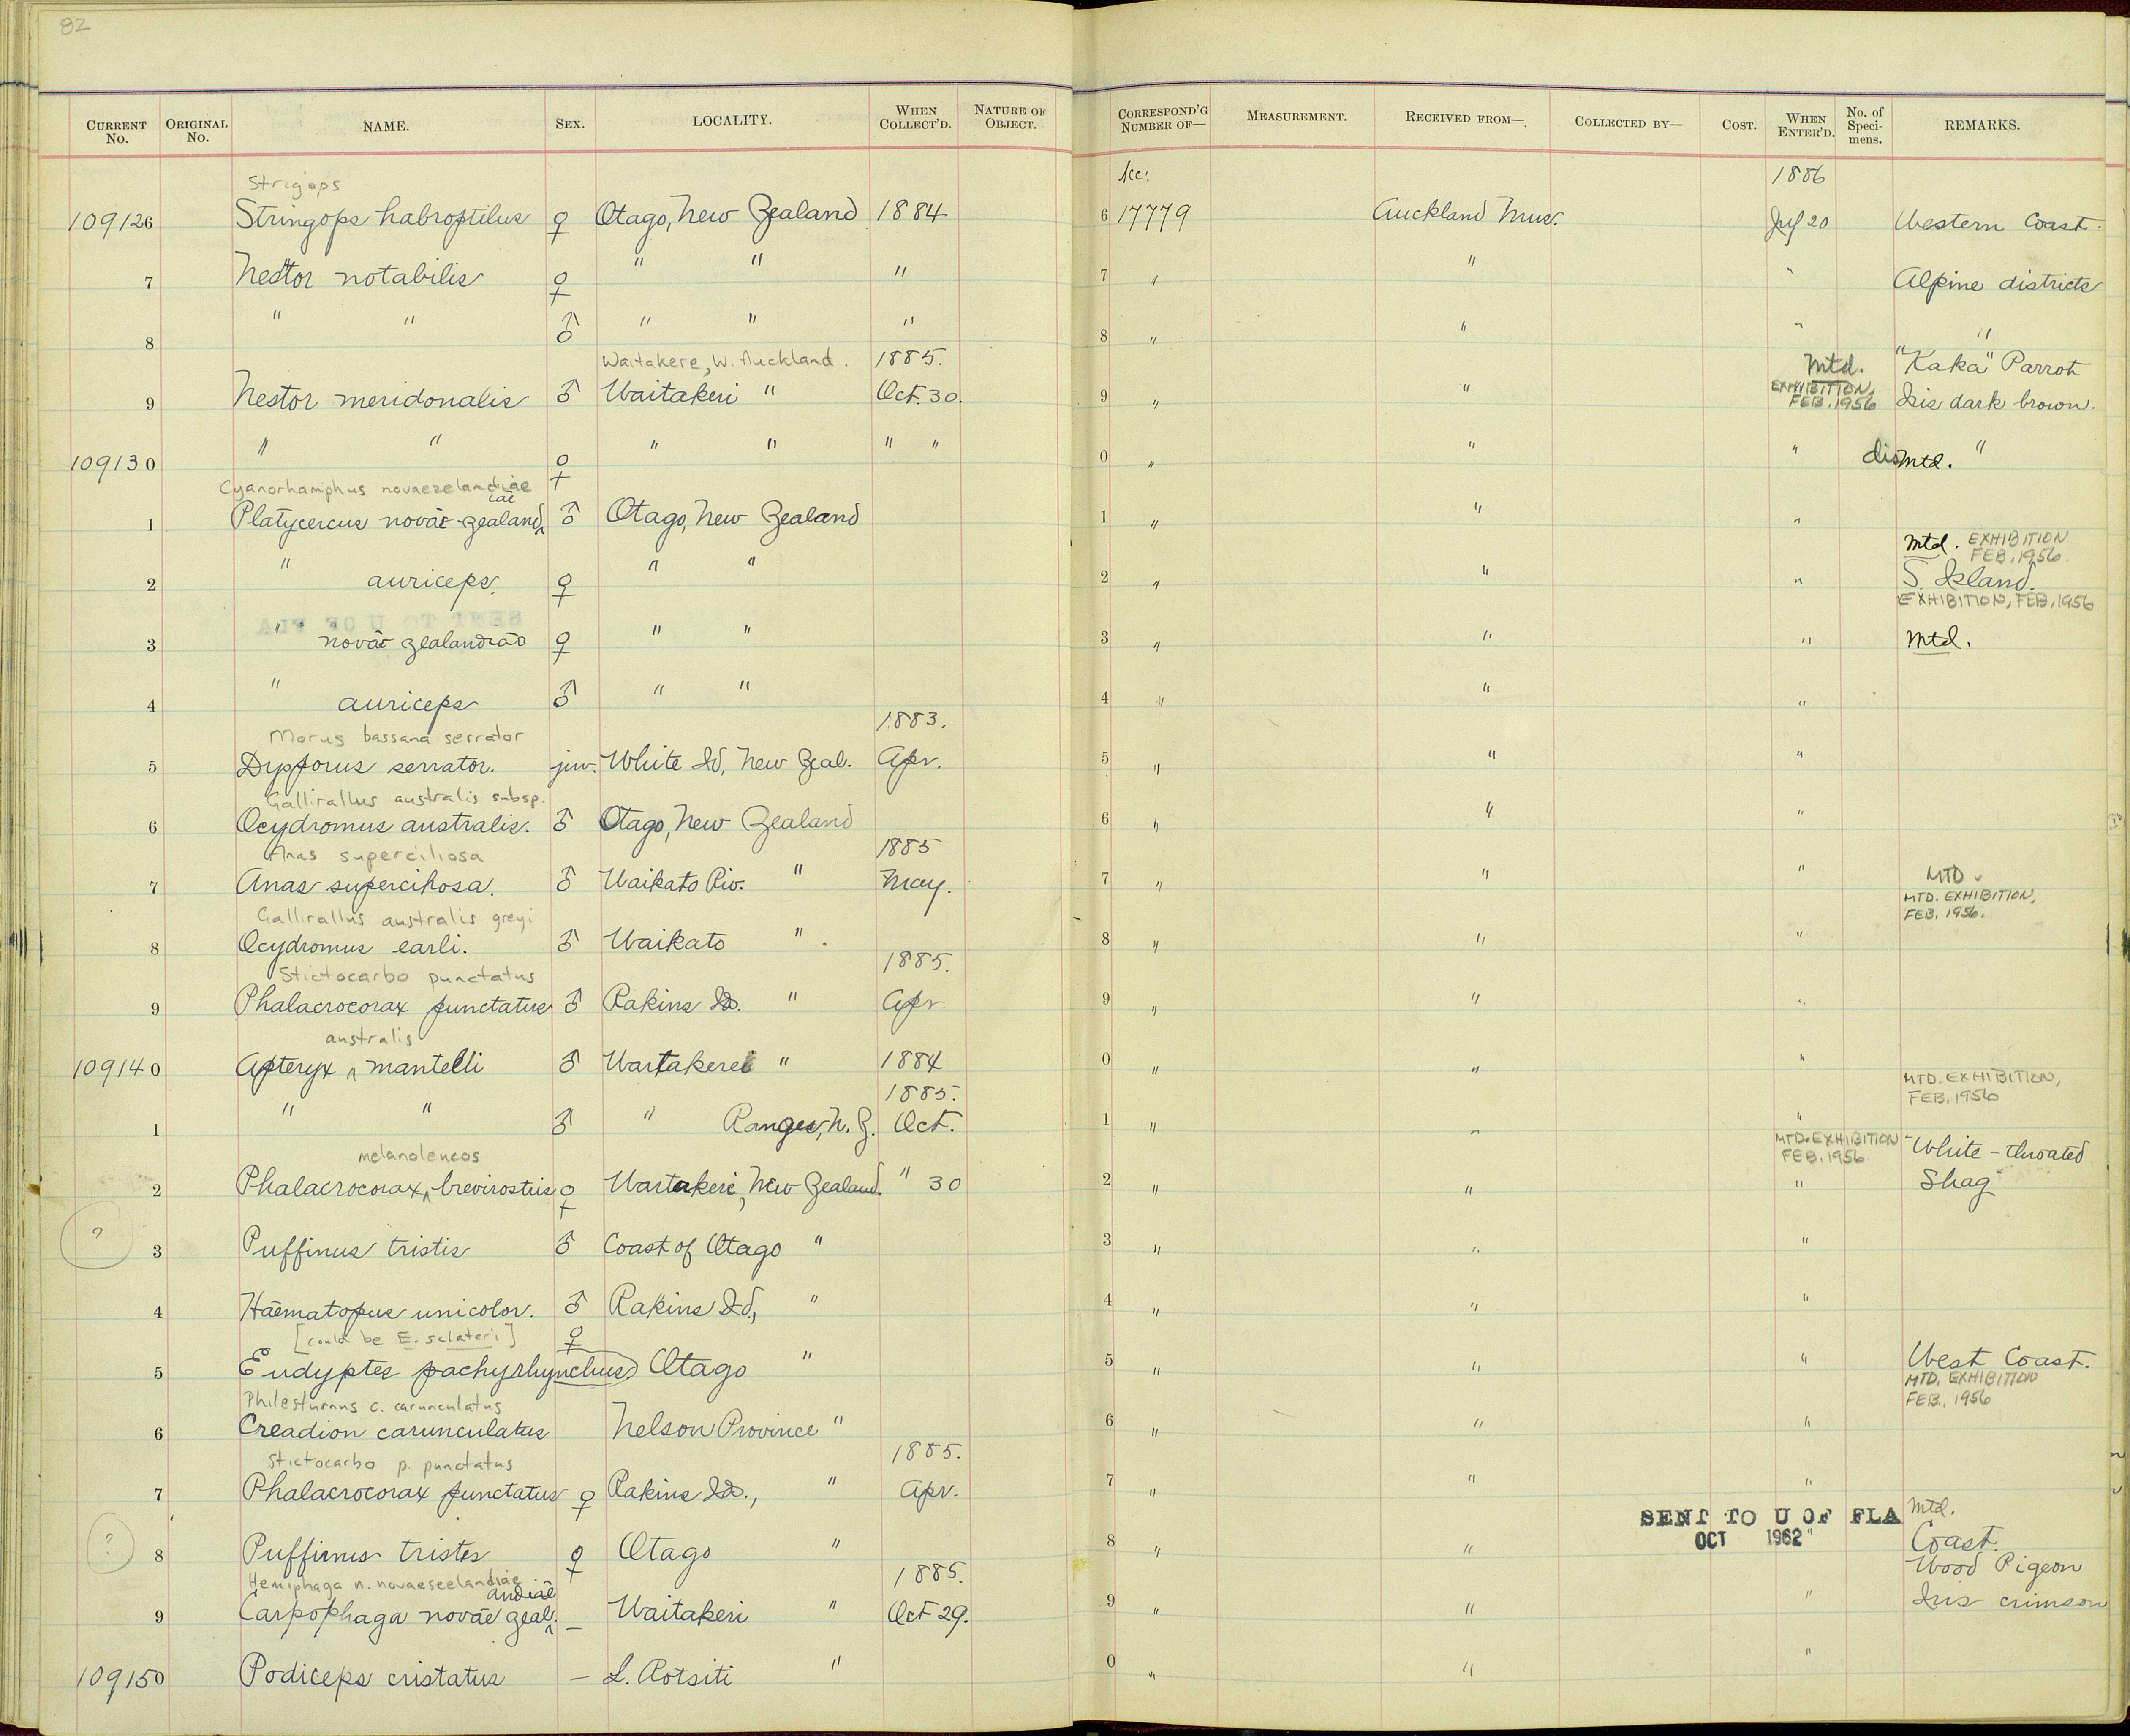 82
CURRENT No. ORIGINAL No. NAME. SEX. LOCALITY. WHEN COLLECT'D. NATURE OF OBJECT. CORRESPOND'G NUMBER OF— MEASUREMENT. RECEIVED FROM—. COLLECTED BY— COST. WHEN ENTER'D. No. of Speci-mens. REMARKS.
Strigops Acc: 1886
109126 Stringops habroptilus ♀ Otago, New Zealand 1884 6 17779 Auckland Mus. July 20 Western Coast.
7 Nestor notabilis ♀ " " " 7 " " " Alpine districts
8 " " ♂ " " " 8 " " " "
Waitakere, W. Auckland. 1885. Mtd. "Kaka" Parrot
9 Nestor meridonalis ♂ Waitakeri " Oct. 30. 9 " " EXHIBITION, FEB. 1956 Iris dark brown.
109130 " " ♀ " " " " 0 " " " dis Mtd. "
Cyanorhamphus novaezelandiae
iae
1 Platycercus novae-zealand ♂ Otago, New Zealand 1 " " "
Mtd. EXHIBITION FEB. 1956.
2 " auriceps. ♀ " " 2 " " " S. Island.
EXHIBITION, FEB. 1956
3 " novae zealandiae ♀ " " 3 " " " Mtd.
4 " auriceps ♂ " " 4 " " "
Morus bassana serrator 1883.
5 Dysporus serrator. juv. White Id, New Zeal. Apr. 5 " " "
Gallirallus australis subsp.
6 Ocydromus australis. ♂ Otago, New Zealand 6 " " "
Anas superciliosa 1885
7 Anas superciliosa. ♂ Waikato Riv. " May. 7 " " " MTD.
Gallirallus australis greyi MTD. EXHIBITION, FEB. 1956.
8 Ocydromus earli. ♂ Waikato " 8 " " "
Stictocarbo punctatus 1885.
9 Phalacrocorax punctatus ♂ Rakins Ids. " Apr 9 " " "
australis
109140 Apteryx ^ mantelli ♂ Waitakerei " 1884 0 " " "
1885. MTD. EXHIBITION, FEB. 1956
1 " " ♂ " Ranges, N. Z. Oct. 1 " " "
melanoleucos MTD. EXHIBITION FEB. 1956. "White-throated
2 Phalacrocorax ^ brevirostris ♀ Waitakeri, New Zealand. " 30 2 " " " Shag"
? 3 Puffinus tristis ♂ Coast of Otago " 3 " " "
4 Haematopus unicolor. ♂ Rakins Id, " 4 " " "
[could be E. sclateri] ♀
5 Eudyptes pachyrhynchus Otago " 5 " " " West Coast.
Philesturnus c. carunculatus MTD. EXHIBITION FEB. 1956
6 Creadion carunculatus Nelson Province " 6 " " "
Stictocarbo p. punctatus 1885.
7 Phalacrocorax punctatus ♀ Rakins Ids., " Apr. 7 " " "
SENT TO U OF FLA Mtd.
OCT 1962
? 8 Puffinus tristis ♀ Otago " 8 " " " Coast.
Hemiphaga n. novaeseelandiae 1885. Wood Pigeon
andiae
9 Carpophaga novae zeal. — Waitakeri " Oct 29. 9 " " " Iris crimson
109150 Podiceps cristatus — L. Rotsiti " 0 " " "